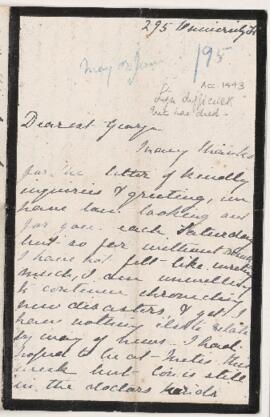 295 University St
May or June
195
Acc 1443
Dearest George
Many thanks
for the letter of kindly
inquiries & greeting, we
have been looking out
for you each Saturday
but so far without
I have not felt like writing
much, I am unwilling
to continue chronicling
new disasters, & yet I
have nothing else to relate
by way of news. I had
hoped to be at Metis this
week but is still
in the doctors hands